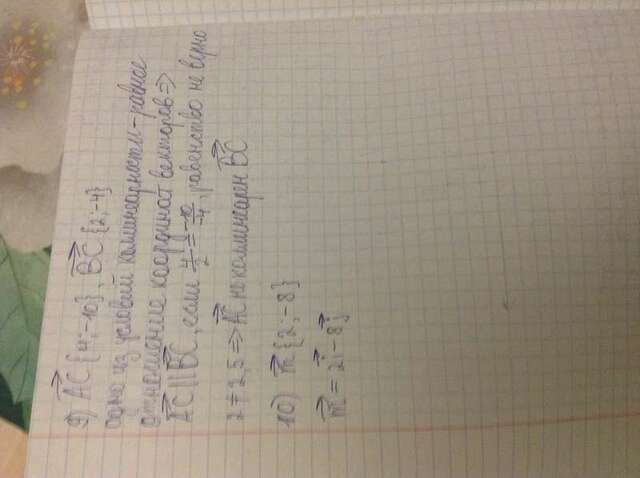 9) AC {4;-10}, BC {2;-4}
одно из условий коллинеарности - равное
отношение координат векторов =>
AC || BC, если 4/2 = -10/-4, равенство не верно
2 ≠ 2,5 => AC не коллинеарен BC
10) m {2;-8}
m = 2i - 8j